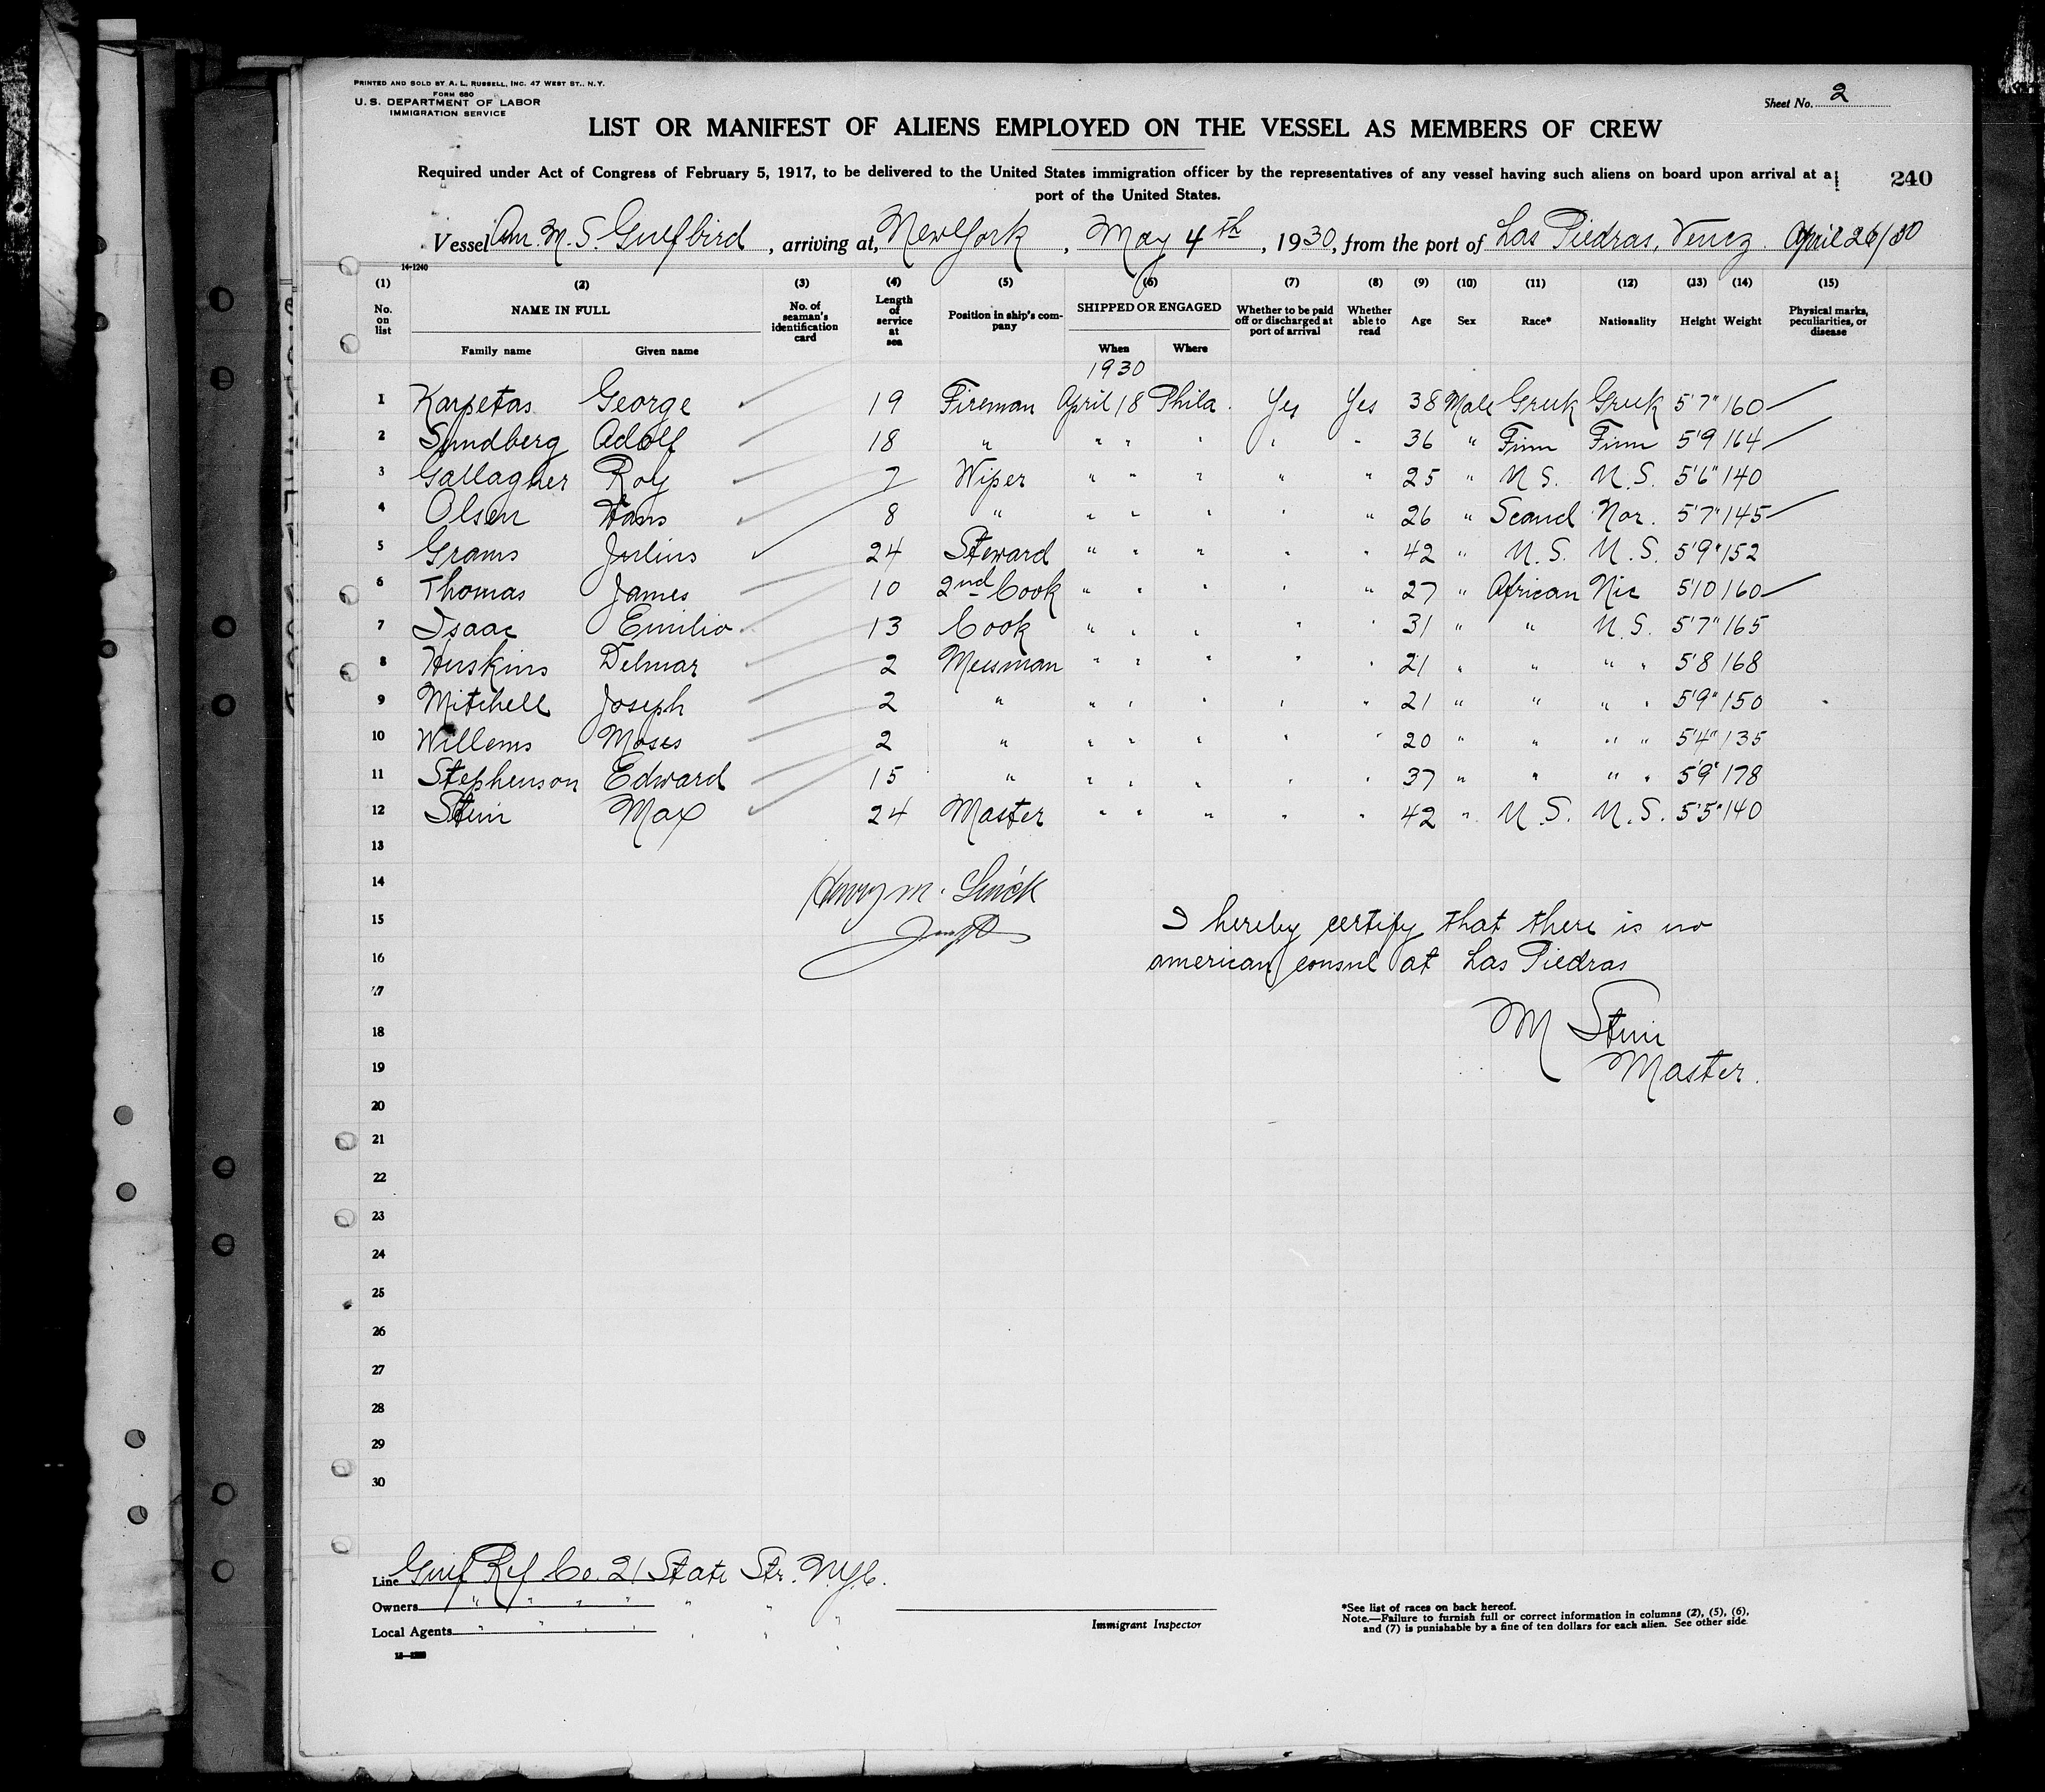 PRINTED AND SOLD BY A. L. RUSSELL, INC. 47 WEST ST., N. Y.
FORM 680
U. S. DEPARTMENT OF LABOR
IMMIGRATION SERVICE
Sheet No. 2
LIST OR MANIFEST OF ALIENS EMPLOYED ON THE VESSEL AS MEMBERS OF CREW
Required under Act of Congress of February 5, 1917, to be delivered to the United States immigration officer by the representatives of any vessel having such aliens on board upon arrival at a
port of the United States.
240
Vessel Am. M. S. Gulfbird, arriving at, New York, May 4th, 1930, from the port of Las Piedras, Venez April 26/30
14-1240
(1) (2) (3) (4) (5) (6) (7) (8) (9) (10) (11) (12) (13) (14) (15)
No. on list NAME IN FULL No. of seaman's identification card Length of service at sea Position in ship's company SHIPPED OR ENGAGED Whether to be paid off or discharged at port of arrival Whether able to read Age Sex Race* Nationality Height Weight Physical marks, peculiarities, or disease
Family name Given name When Where
1930
1 Karpetas George 19 Fireman April 18 Phila. Yes Yes 38 Male Greek Greek 5'7" 160
2 Sundberg Adolf 18 " " " " " " 36 " Finn Finn 5'9 164
3 Gallagher Roy 7 Wiper " " " " " 25 " U.S. U.S. 5'6" 140
4 Olsen Hans 8 " " " " " " 26 " Scand Nor. 5'7" 145
5 Grams Julius 24 Steward " " " " " 42 " U.S. U.S. 5'9" 152
6 Thomas James 10 2nd Cook " " " " " 27 " African Nic 5'10 160
7 Isaac Emilio 13 Cook " " " " " 31 " " U.S. 5'7" 165
8 Huskins Delmar 2 Messman " " " " " 21 " " " " 5'8 168
9 Mitchell Joseph 2 " " " " " " 21 " " " " 5'9" 150
10 Willems Moses 2 " " " " " " 20 " " " " 5'4" 135
11 Stephenson Edward 15 " " " " " " 37 " " " " 5'9" 178
12 Stein Max 24 Master " " " " " 42 " U.S. U.S. 5'5" 140
13
14
15
16
17
18
19
20
21
22
23
24
25
26
27
28
29
30
I hereby certify that there is no
american consul at Las Piedras
M Stein
Master.
Line Gulf Ref Co. 21 State Str. N.Y.C.
Owners " " " " " " "
Local Agents " " " " " " "
Immigrant Inspector
*See list of races on back hereof.
Note.—Failure to furnish full or correct information in columns (2), (5), (6),
and (7) is punishable by a fine of ten dollars for each alien. See other side